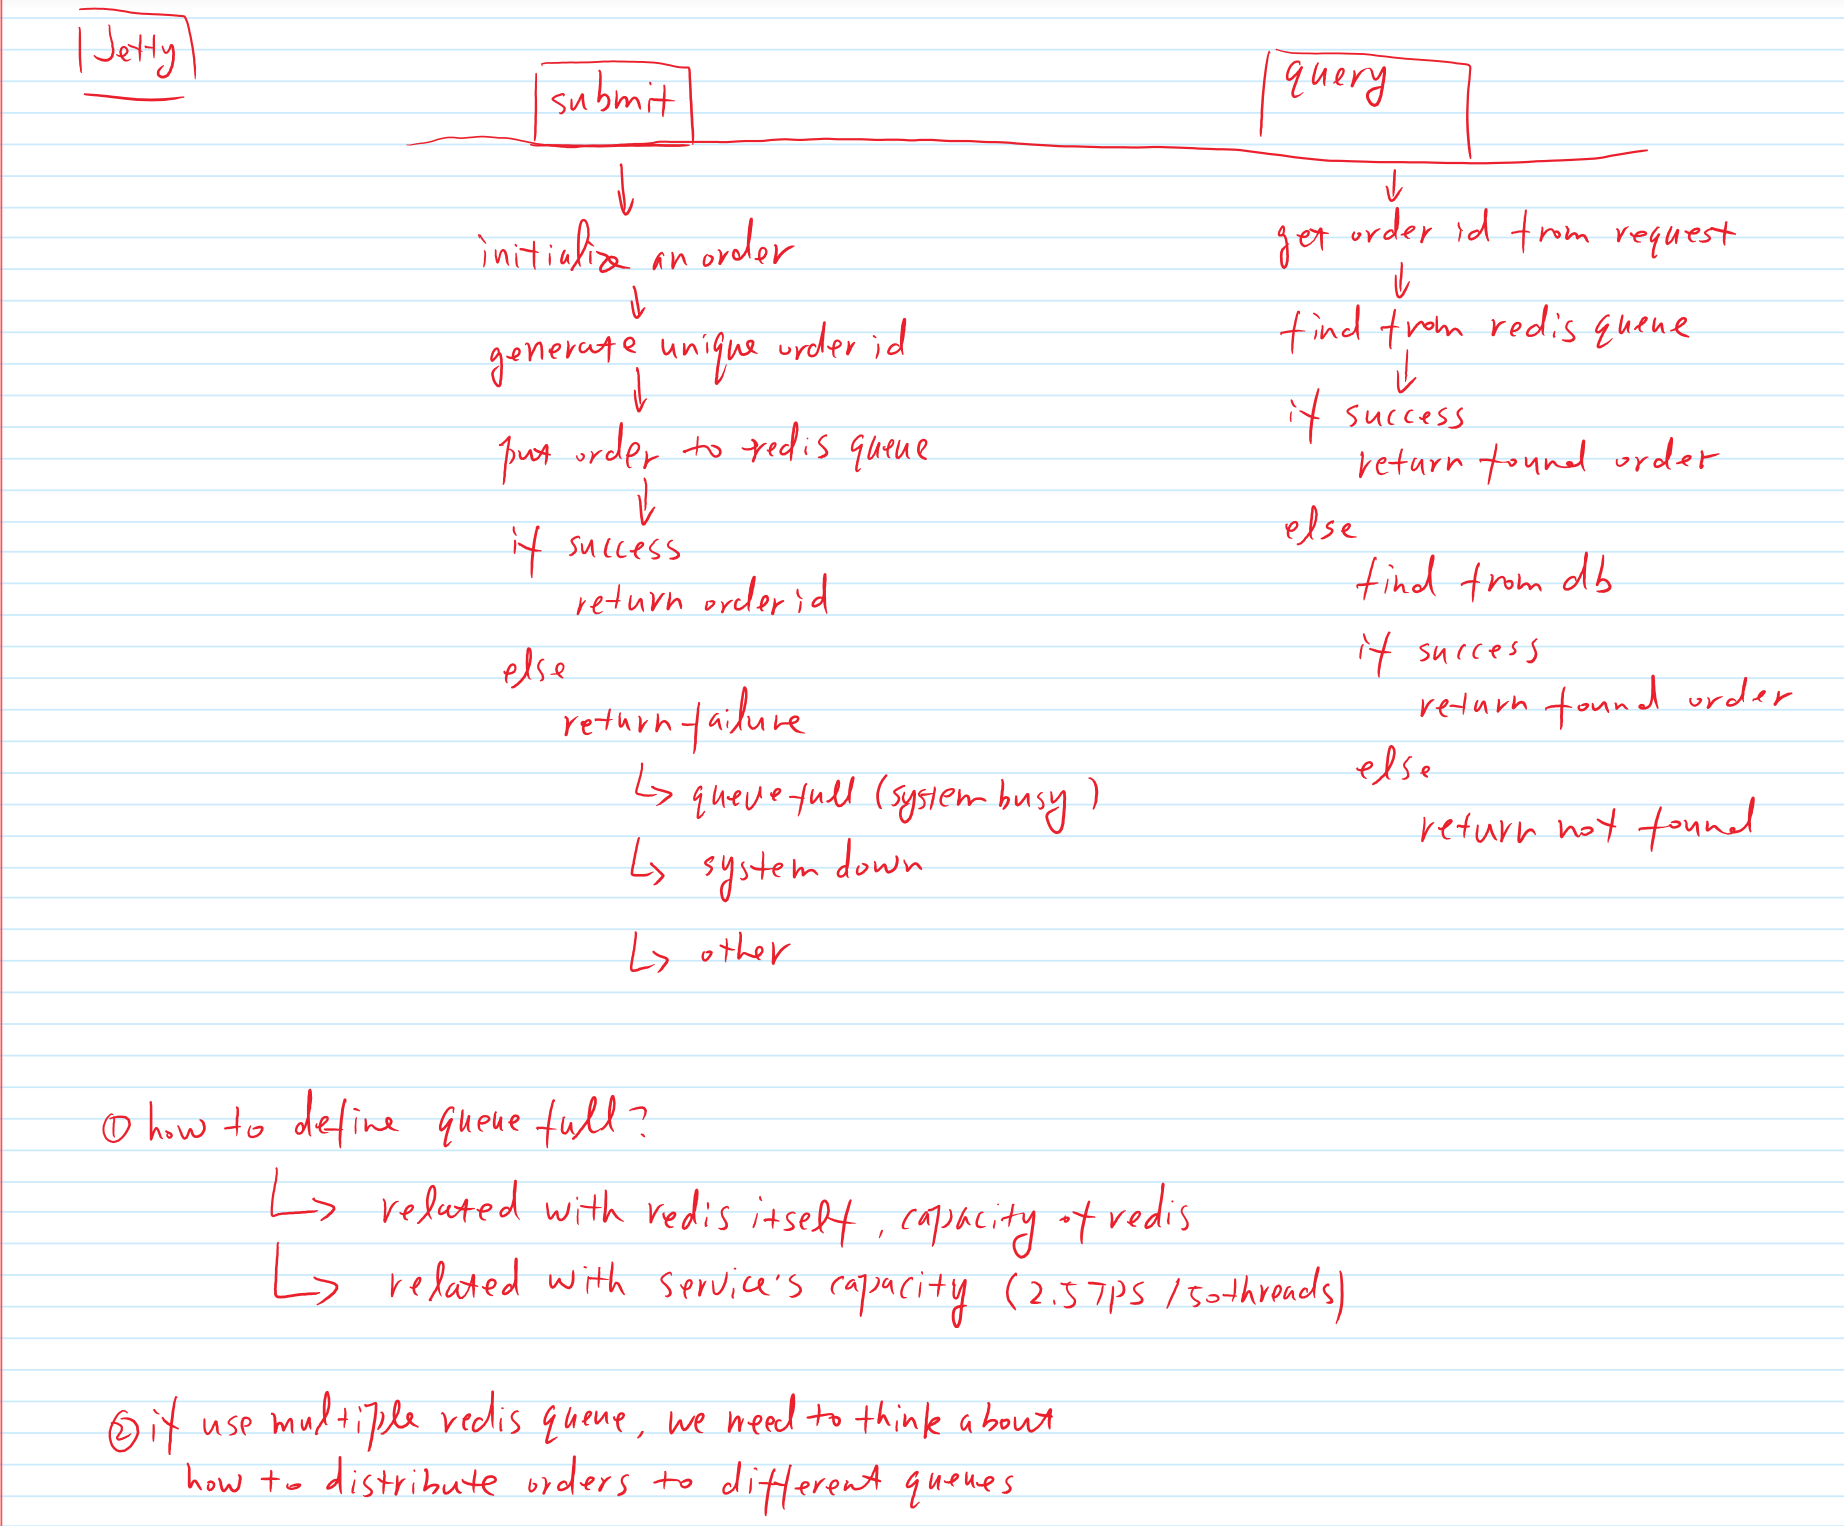 Jetty
submit
initialize an order
generate unique order id
put order to redis queue
if success
return order id
else
return failure
queue full (system busy)
system down
other
query
get order id from request
find from redis queue
if success
return found order
else
find from db
if success
return found order
else
return not found
① how to define queue full?
related with redis itself, capacity of redis
related with service's capacity (2.5TPS / 50threads)
② if use multiple redis queue, we need to think about
how to distribute orders to different queues